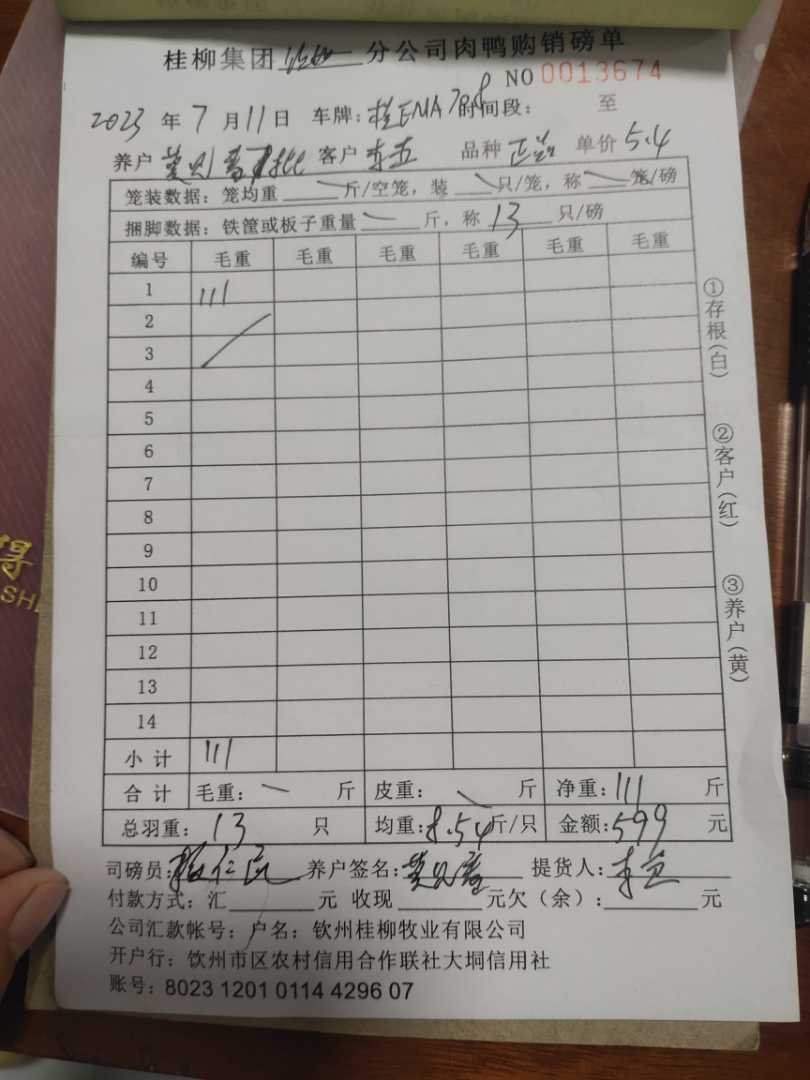 桂柳集团 分公司肉鸭购销磅单
NO 0013674
2023 年 7 月 11 日 车牌: 桂EMA788 时间段: 至
养户 客户 品种 单价 5.4
笼装数据: 笼均重 斤/空笼, 装 只/笼, 称 笼/磅
捆脚数据: 铁筐或板子重量 斤, 称 13 只/磅
编号 毛重 毛重 毛重 毛重 毛重 毛重
1 111
2
3
4
5
6
7
8
9
10
11
12
13
14
小计 111
合计 毛重: 斤 皮重: 斤 净重: 111 斤
总羽重: 13 只 均重: 8.54 斤/只 金额: 599 元
司磅员: 养户签名: 提货人:
付款方式: 汇 元 收现 元欠(余): 元
公司汇款帐号: 户名: 钦州桂柳牧业有限公司
开户行: 钦州市区农村信用合作联社大垌信用社
账号: 8023 1201 0114 4296 07
①存根(白)
②客户(红)
③养户(黄)
得
SHE